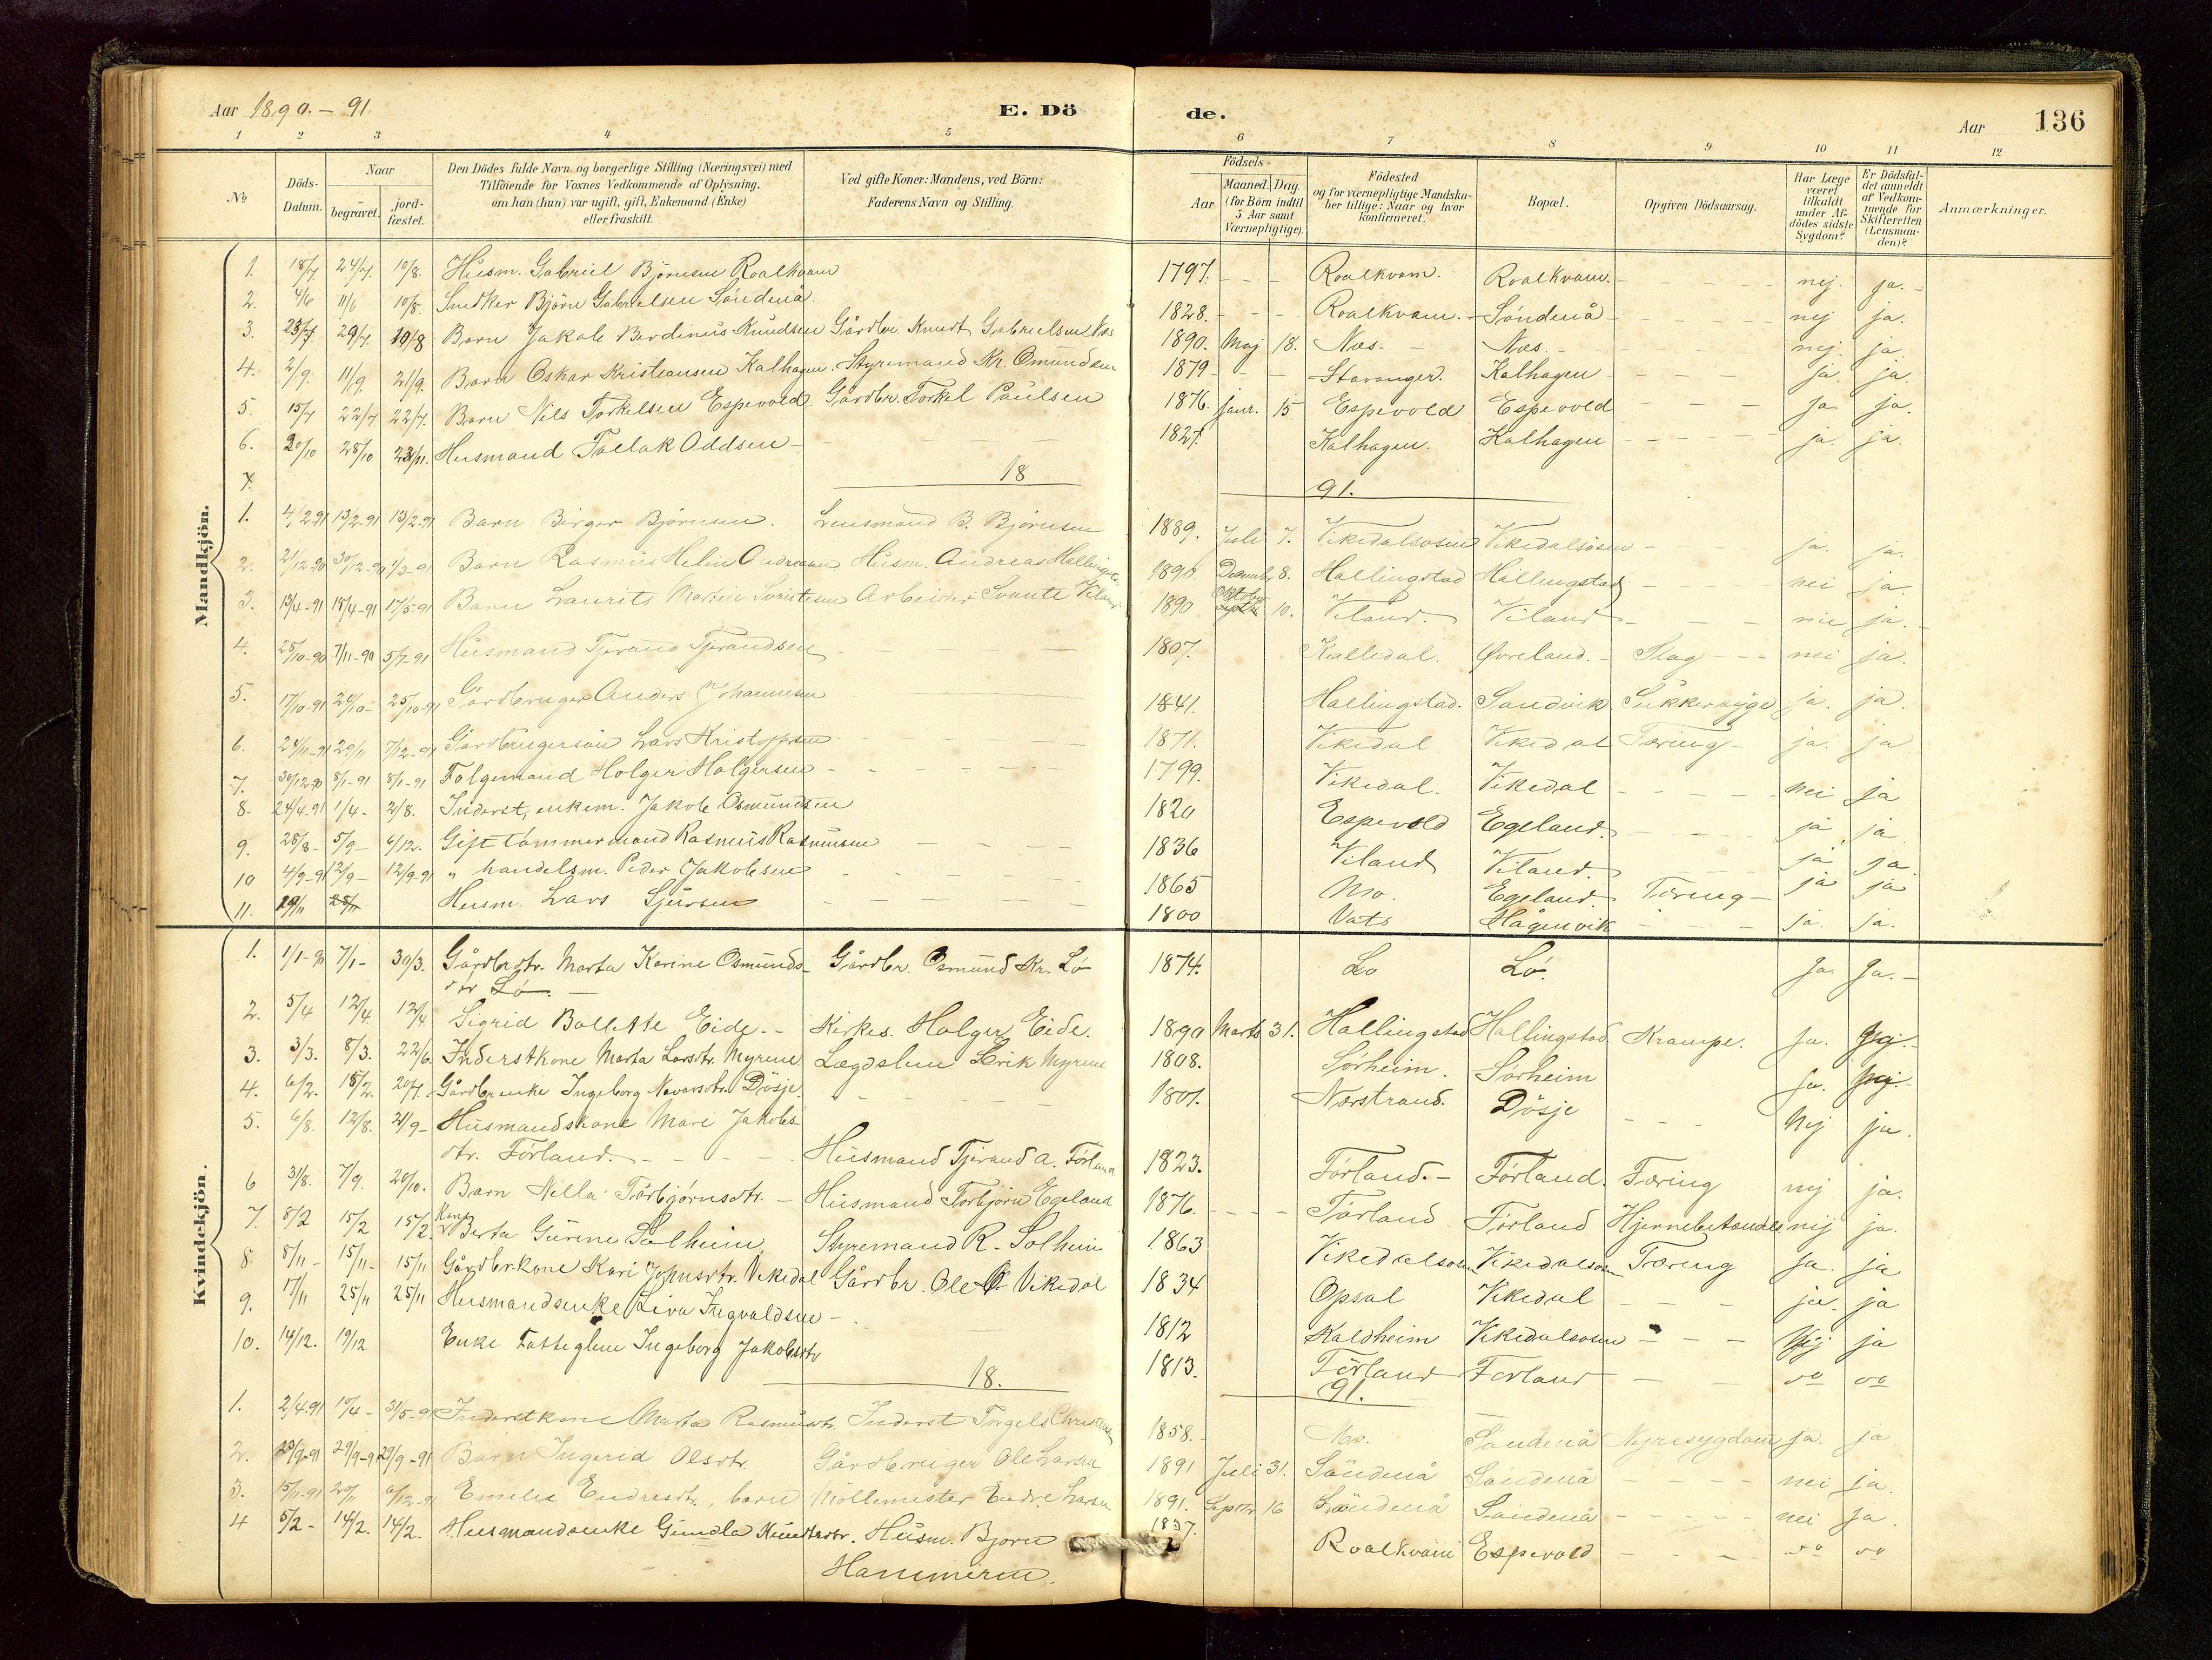 Aar 1890.-91. E. Döde. Aar 136
1 2 3 4 5 6 7 8 9 10 11 12
No
Döds-Datum.
Naar
begravet. jordfæstet.
Den Dödes fulde Navn og borgerlige Stilling (Næringsvei) med Tilföiende for Voxnes Vedkommende af Oplysning, om han (hun) var ugift, gift, Enkemand (Enke) eller fraskilt.
Ved gifte Koner: Mandens, ved Börn: Faderens Navn og Stilling.
Födsels-
Aar Maaned. Dag. (for Börn indtil 5 Aar samt Værnepligtige).
Födested og for værnepligtige Mandskaber tillige: Naar og hvor konfirmeret.
Bopæl.
Opgiven Dödsaarsag.
Har Læge været tilkaldt under Afdödes sidste Sygdom?
Er Dödsfaldet anmeldt af Vedkommende for Skifteretten (Lensmanden)?
Anmærkninger.
Mandkjön.
1. 18/7 24/7. 10/8. Husm. Gabriel Björnsen Roalkvam 1797. Roalkvam. Roalkvam. nej. ja.
2. 4/6 11/6 10/8. Snedker Björn Gabrielsen Söndenå. 1828. Roalkvam. Söndenå nej ja.
3. 25/7 29/7. 10/8 Barn Jakob Berdinus Knudsen Gårdbr. Knudt Gabrielsen Næs 1890. Maj 18. Næs Næs. nej. ja.
4. 2/9. 11/9. 21/9. Barn Oskar Kristiansen Kalhagen. Styrmand Kr. Omundsen 1879 Stavanger. Kalhagen ja. ja.
5. 15/7 22/7 22/7. Barn Nils Torkelsen Espevold Gårdbr. Torkel Paulsen 1876. Janr. 15 Espevold Espevold ja. ja.
6. 20/10 28/10 23/11. Husmand Tollak Oddsen 1827. Kalhagen. Kalhagen ja. ja.
7. 18 91.
1. 4/2-91 13/2-91 13/2-91 Barn Birger Björnsen. Lensmand B. Björnsen 1889. Juli 7. Vikedalsosen Vikedalsosen ja. ja.
2. 21/12-90 30/12-90 Barn Rasmus Helin Andreasen Husm. Andreas Hallingstad 1890. Decemb. 8. Hallingstad Hallingstad nei ja.
3. 13/4-91 18/4-91 17/5-91 Barn Laurits Martin Svantesen Arbeider Svante Viland 1890 Oktober 10. Viland. Viland nei ja.
4. 28/10-90 7/11-90 5/7-91 Husmand Tjerand Tjerandsen 1807. Kallidal. Øvreland. Slag nei ja.
5. 17/10-91 24/10- 25/10-91 Gårdbruger Anders Johannesen 1841. Hallingstad. Sandvik Sukkersyge ja. ja.
6. 24/11-91 29/11 7/12-91 Gårdbrugersön Lars Kristoffersen 1871. Vikedal Vikedal Tæring ja. ja
7. 30/12-90 8/1-91 8/1-91 Folgemand Holger Holgersen 1799. Vikedal. Vikedal nei ja
8. 24/4-91 1/4- 2/8. Inderst, enkem. Jakob Osmundsen 1820 Espevold Egeland. ja ja
9. 28/8- 5/9- 6/12. Gift tömmermand Rasmus Rasmusen 1836 Viland Viland. ja ja.
10 4/9-91 12/9- 12/9-91 " handelsm. Peder Jakobsen 1865 Mo. Egeland. Tæring ja ja
11. 29/11 25/11 Husm. Lars Sjursen 1800 Vats Hågenvik ja. ja.
Kvindekjön.
1. 1/1-90 7/1- 30/3. Gårdbrdtr. Marta Karine Osmundsdtr Lö. Gårdbr. Osmund Kr. Lö 1874. Lo Lö. ja. ja.
2. 5/4 12/4. 12/4. Sigrid Bollette Eide. Kirkes. Holger Eide. 1890 Marts 31. Hallingstad Hallingstad Krampe. ja. nej.
3. 3/3. 8/3. 22/6. Inderstkone Marta Larsdtr. Myrene Lægdslem Erik Myrene 1808. Sörheim. Sörheim ja. nej.
4. 6/2. 15/2. 20/7. Gårdbrenke Ingeborg Nevarsdtr. Dösje. 1801. Nærstrand. Dösje Nej ja.
5. 6/8. 12/8. 21/9- Husmandskone Mari Jakobsdtr. Förland. Husmand Tjerand A. Förland 1823. Förland. Förland. Tæring nej ja.
6 31/8. 7/9. 20/10. Barn Nilla Torbjörnsdtr. Husmand Torbjörn Egeland 1876. Förland Förland Hjernebetændelse nej ja.
7. 8/2 15/2 15/2. Kone Berta Gurine Solheim Styrmand R. Solheim 1863 Vikedalsosen Vikedalsosen Tæring ja. ja
8. 8/11- 15/11- 15/11 Gårdbr.kone Kari Johnsdtr. Vikedal Gårdbr. Ole Vikedal 1834 Opsal Vikedal ja. ja
9. 17/11 25/11 25/11 Husmandsenke Liva Ingvaldsen 1812 Kaldheim Vikedalsosen Nej ja
10. 14/12. 19/12 Enke Fattiglem Ingeborg Jakobsdtr 1813. Förland Forland do do
18. 91.
1. 2/4.91 10/4- 31/5-91 Inderstkone Marta Rasmusdtr. Inderst Torgels Christensen 1858. Mo. Söndenå Nyresygdom ja. ja
2. 23/9-91 29/9-91 29/9-91 Barn Ingerid Olsdtr. Gårdbruger Ole Larsen 1891 Juli 31. Söndenå Söndenå nei ja.
3. 15/11-91 20/11 6/12-91 Emelie Endresdtr., barn Möllemester Endre Larsen 1891. Septbr 16 Söndenå Söndenå nei ja.
4 5/2- 14/2. 14/2. Husmandsenke Gunda Knudsdtr. Husm. Björn Hammeren. 1837. Roalkvam Espevold do do